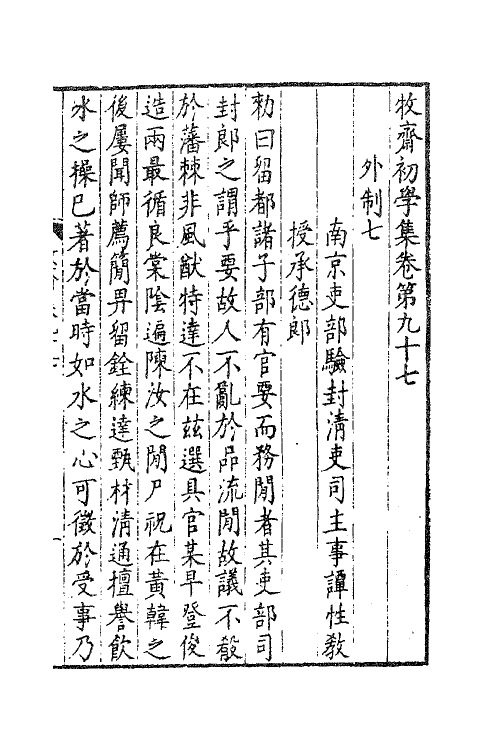 牧齋初學集卷第九十七
外制七
南京吏部驗封清吏司主事譚性教
授承德郎
勑曰留都諸子部有官要而務閒者其吏部司
封郎之謂乎要故人不亂於品流閒故議不殽
於藩棘非風猷特達不在兹選具官某早登俊
造兩最循良棠陰遍陳汝之閒尸祝在黃韓之
後屢聞師薦簡畀留銓練達甄材清通擅譽飲
冰之操已著於當時如水之心可徵於受事乃